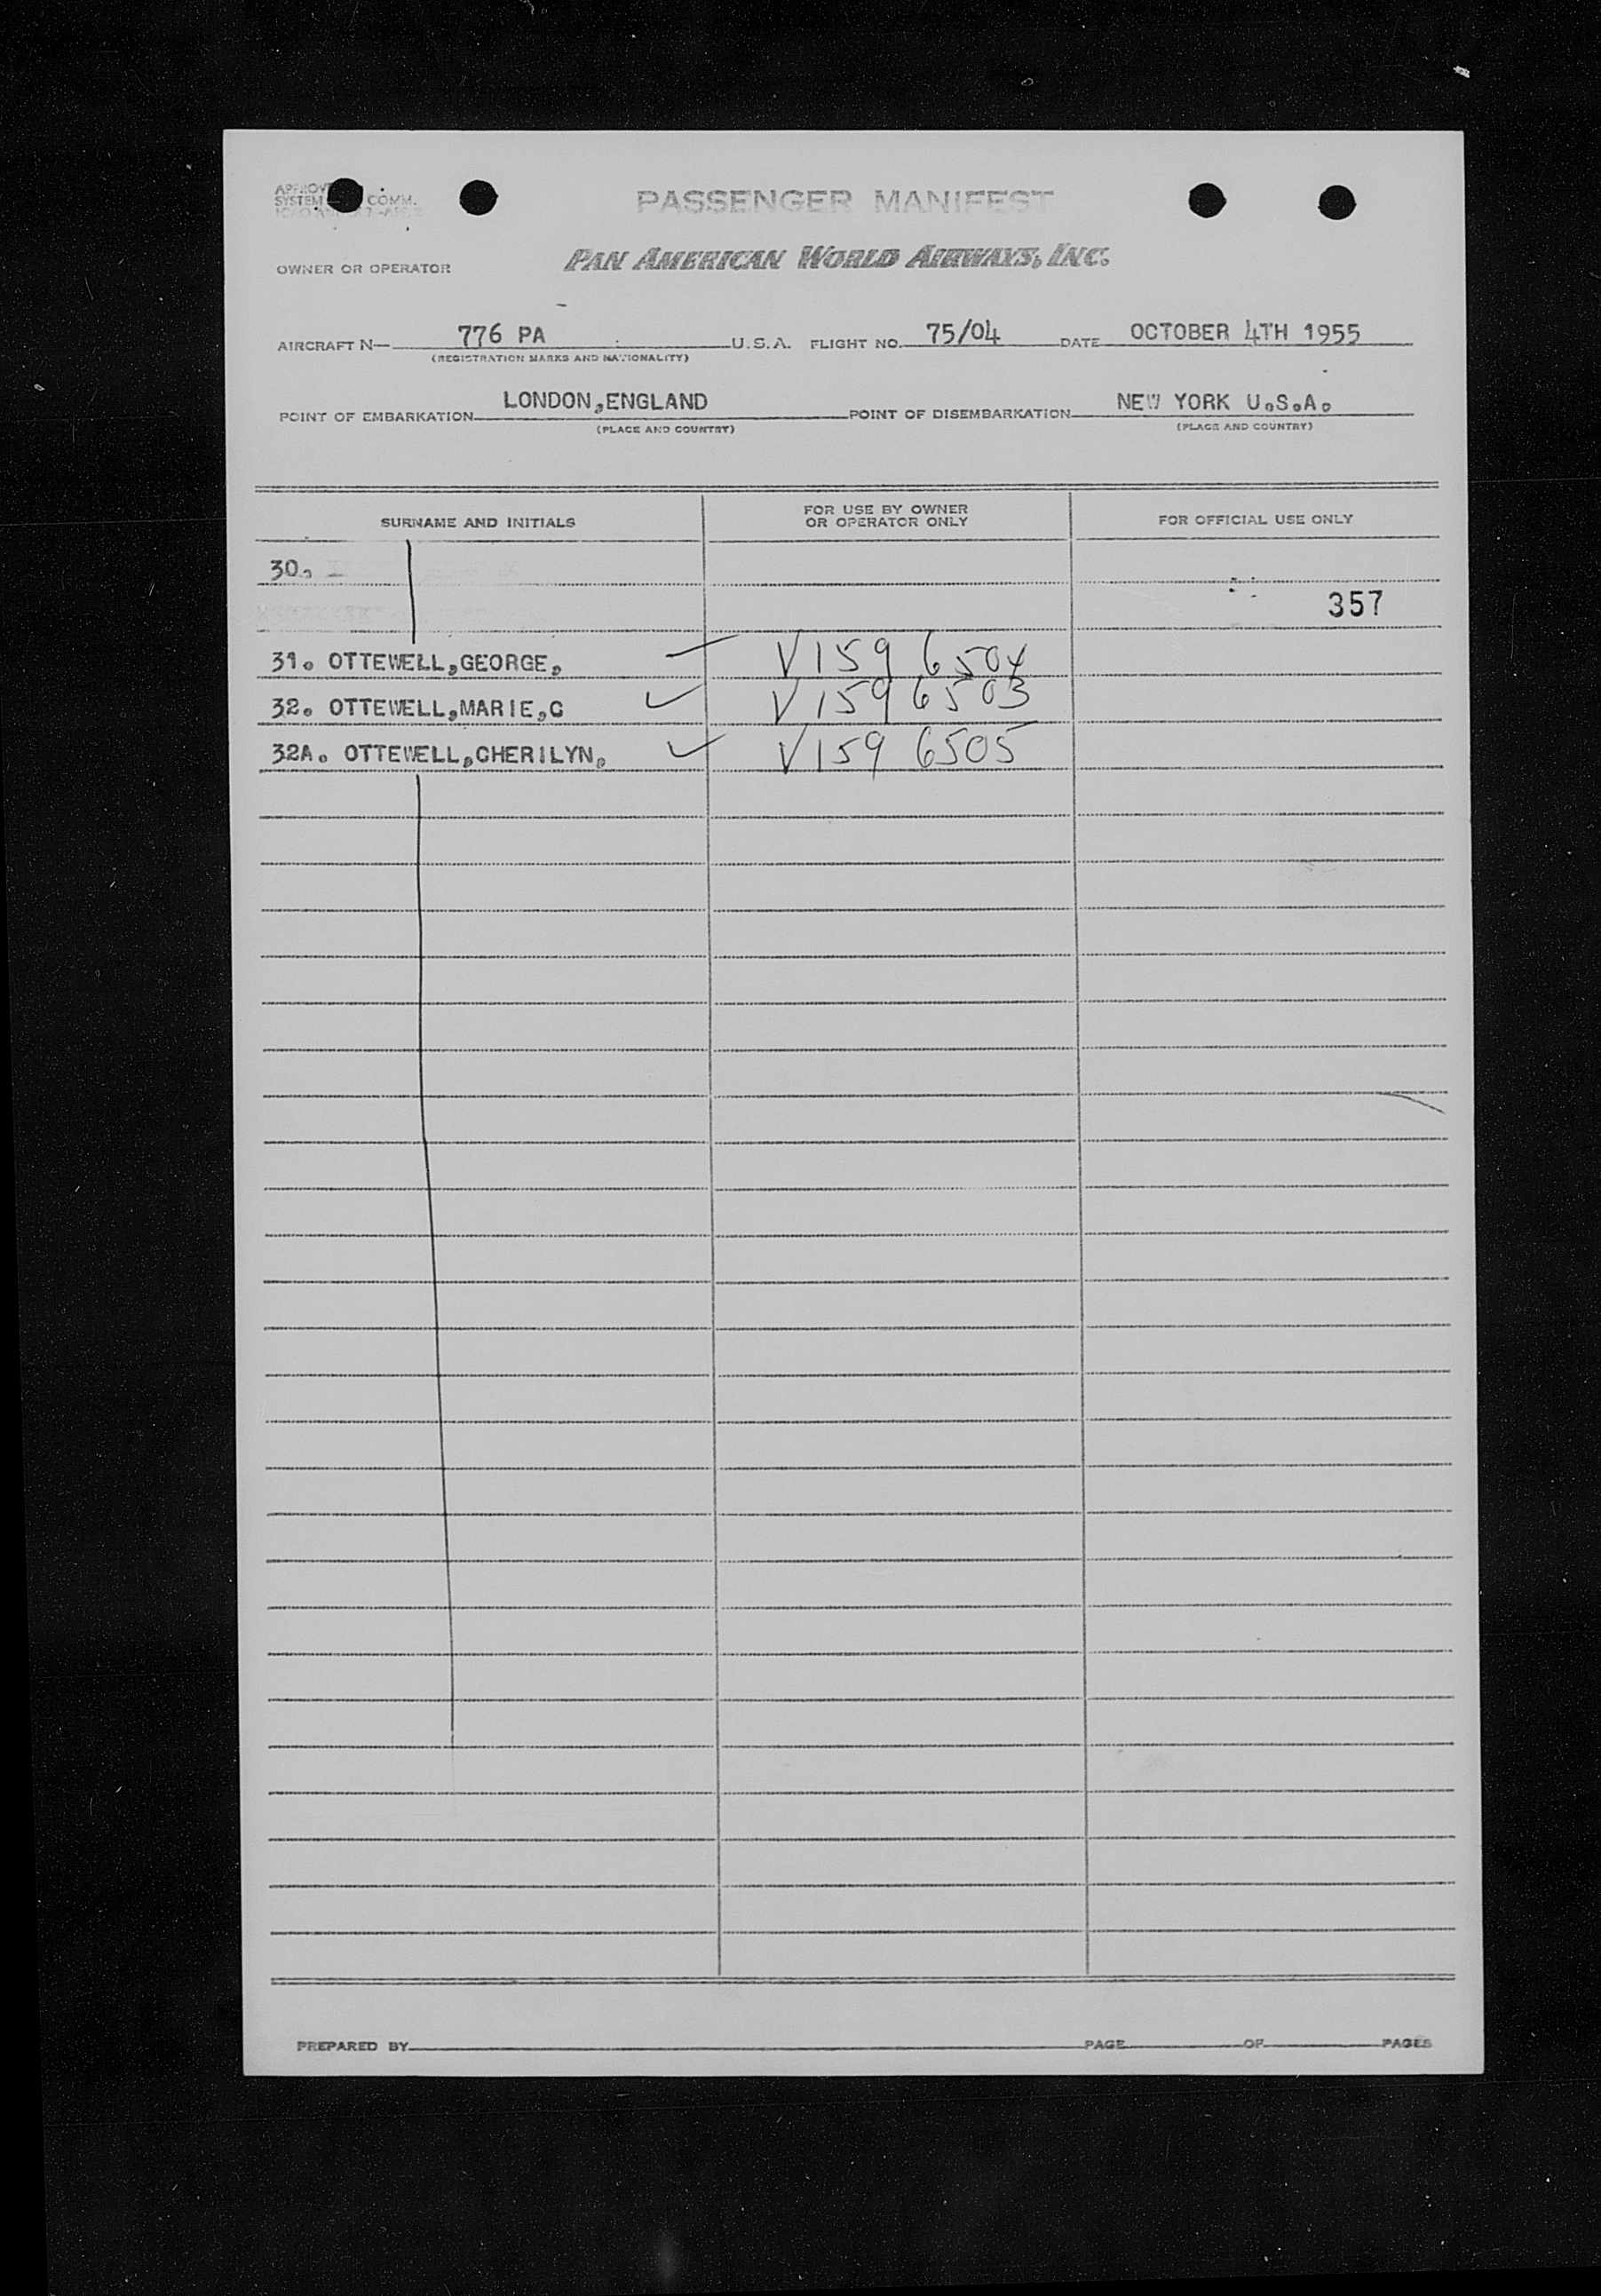 PASSENGER MANIFEST
SYSTEM COMM.
OWNER OR OPERATOR PAN AMERICAN WORLD AIRWAYS, INC.
AIRCRAFT N— 776 PA U.S.A. FLIGHT NO. 75/04 DATE OCTOBER 4TH 1955
(REGISTRATION MARKS AND NATIONALITY)
POINT OF EMBARKATION LONDON,ENGLAND POINT OF DISEMBARKATION NEW YORK U.S.A.
(PLACE AND COUNTRY) (PLACE AND COUNTRY)
SURNAME AND INITIALS FOR USE BY OWNER OR OPERATOR ONLY FOR OFFICIAL USE ONLY
30.
357
31. OTTEWELL,GEORGE, V159 6504
32. OTTEWELL,MARIE,C V159 6503
32A. OTTEWELL,CHERILYN, V159 6505
PREPARED BY PAGE OF PAGES